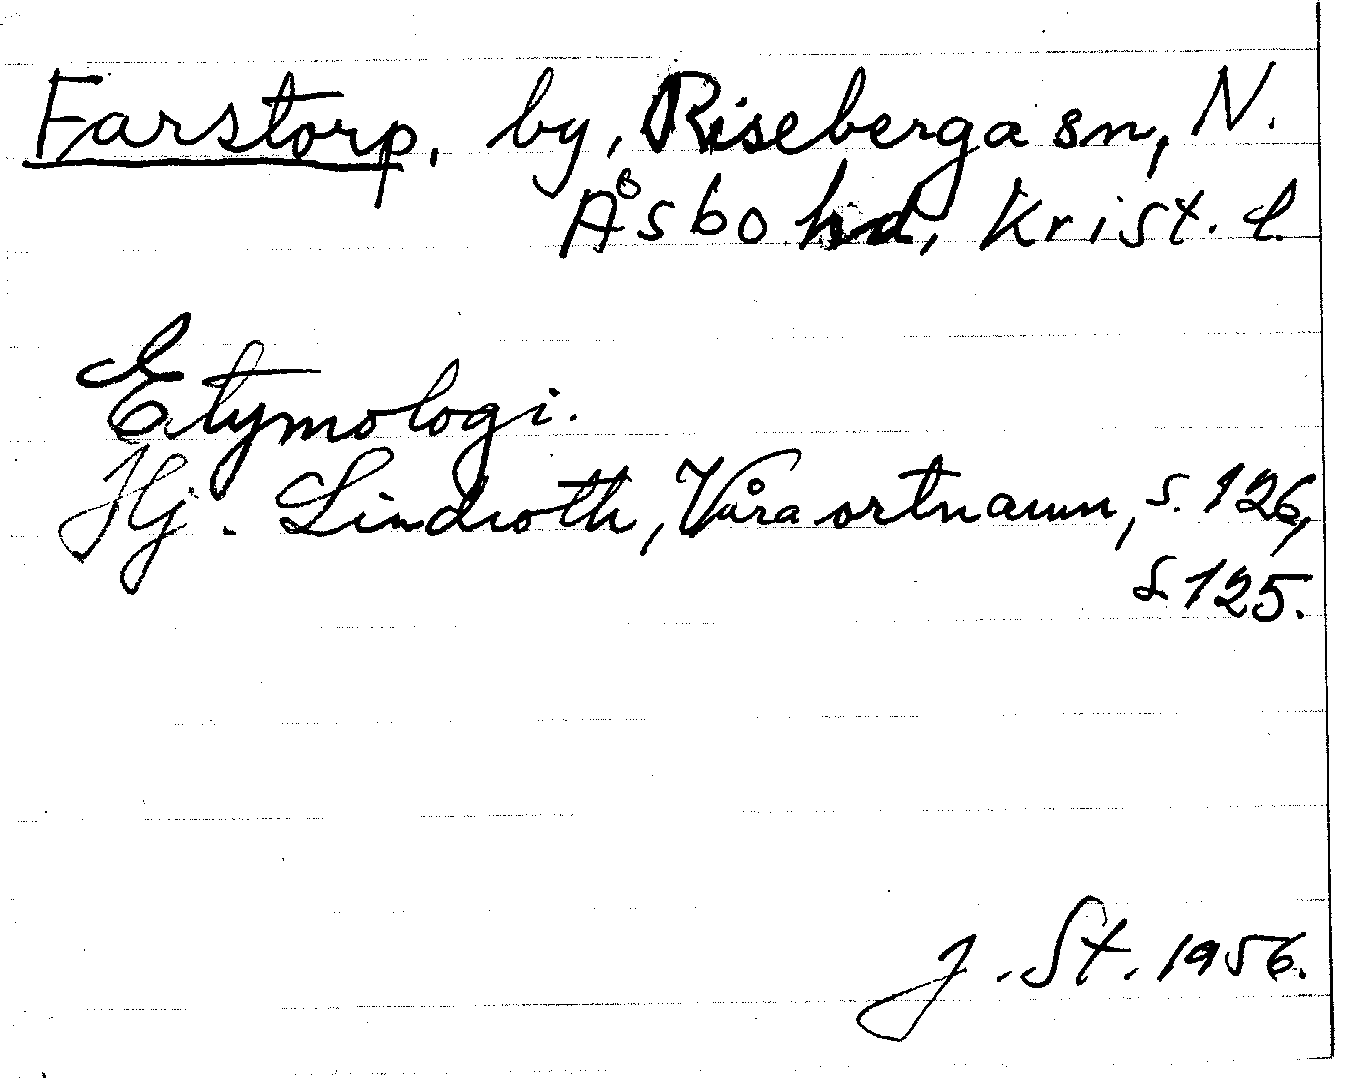 Farstorp, by, Riseberga sn, N.
Åsbo hd, Krist. l.
Etymologi.
Hj. Lindroth, Våra ortnamn, s. 126,
s. 125.
J. St. 1956.